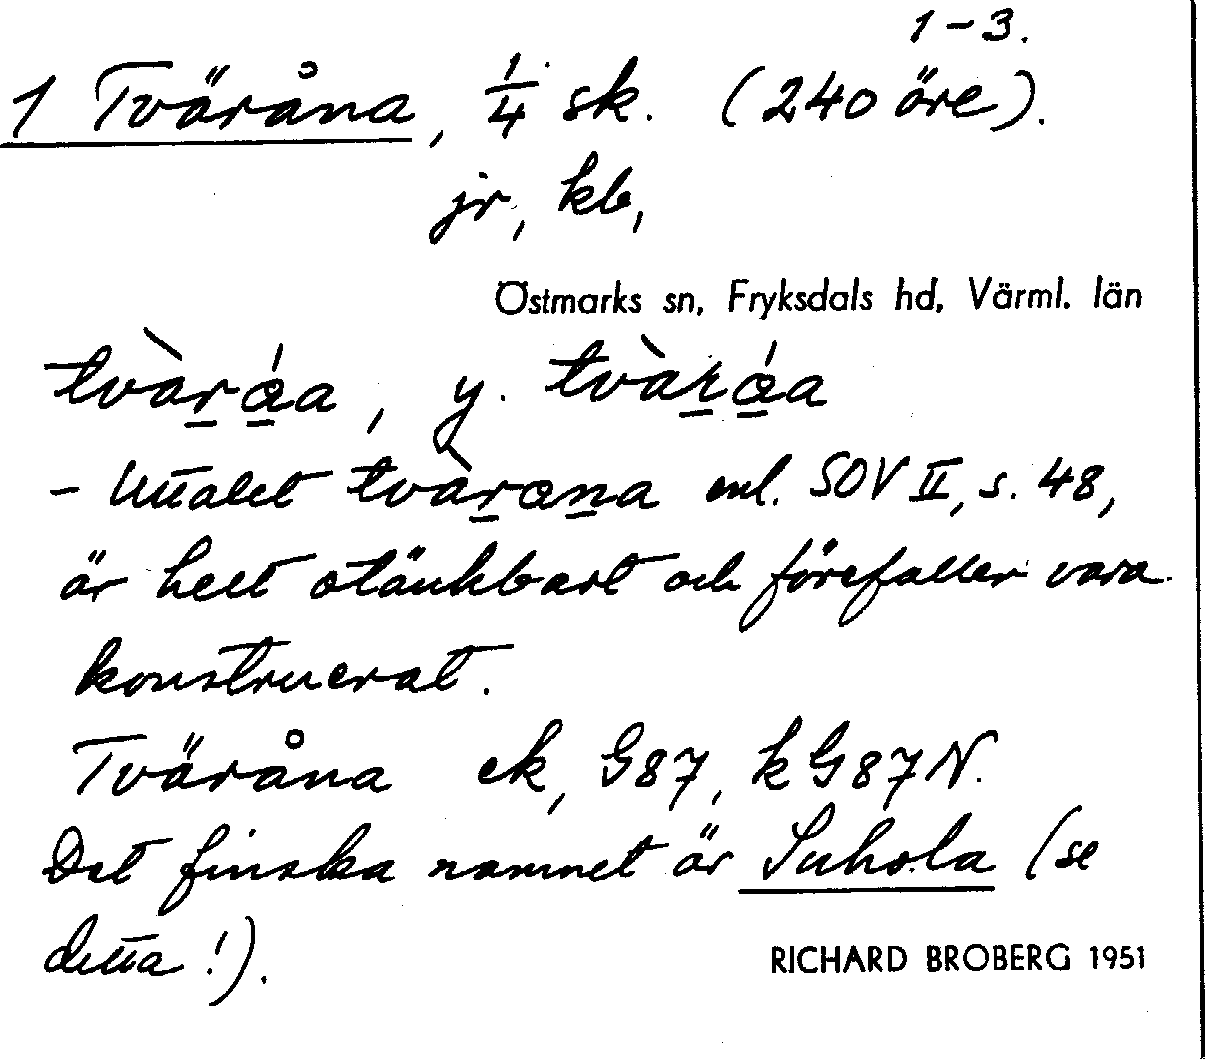 1-3.
1 Tväråna, 1/4 sk. (240 öre).
jr, kb,
Östmarks sn, Fryksdals hd, Värml. län
tvàr̲ǻ̲a, y. tvàr̲ǻ̲a
- Uttalet tvàr̲an̲a enl. SOV II, s. 48,
är helt otänkbart och förefaller vara
konstruerat.
Tväråna ek, G87, kG87N.
Det finska namnet är Suhola (se
detta!).
RICHARD BROBERG 1951